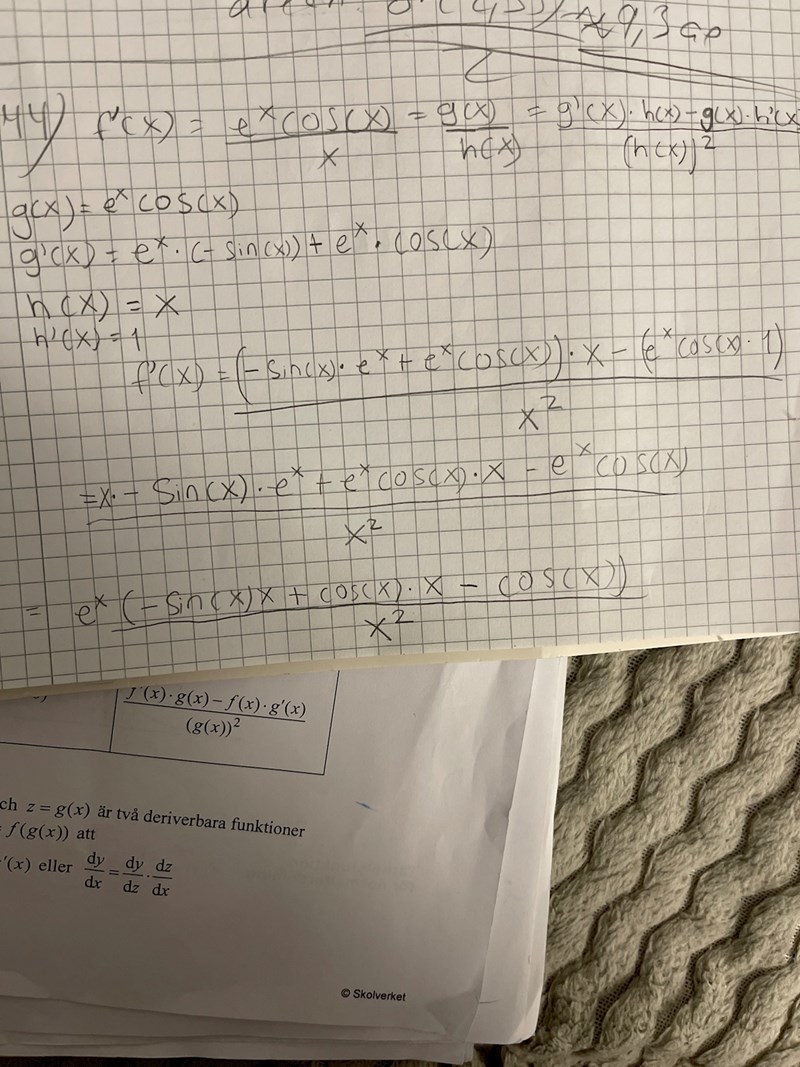 ≈ 9,3 ap
2
44) f'(x) = e^x cos(x) / x = g(x) / h(x) = g'(x)·h(x)-g(x)·h'(x / (h(x))^2
g(x) = e^x cos(x)
g'(x) = e^x·(- sin(x)) + e^x · cos(x)
h(x) = x
h'(x) = 1
f'(x) = (-sin(x)· e^x + e^x cos(x))· x - (e^x cos(x) · 1) / x^2
= x· - sin(x)·e^x + e^x cos(x)·x - e^x cos(x) / x^2
= e^x (-sin(x)x + cos(x)·x - cos(x)) / x^2
f'(x)·g(x)–f(x)·g'(x) / (g(x))^2
ch z = g(x) är två deriverbara funktioner
f(g(x)) att
'(x) eller dy/dx = dy/dz · dz/dx
© Skolverket